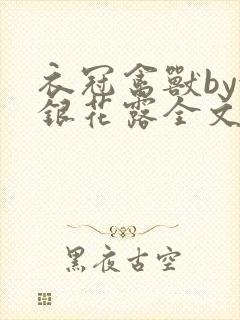 衣冠禽獸by
銀花露全文
黑夜古空